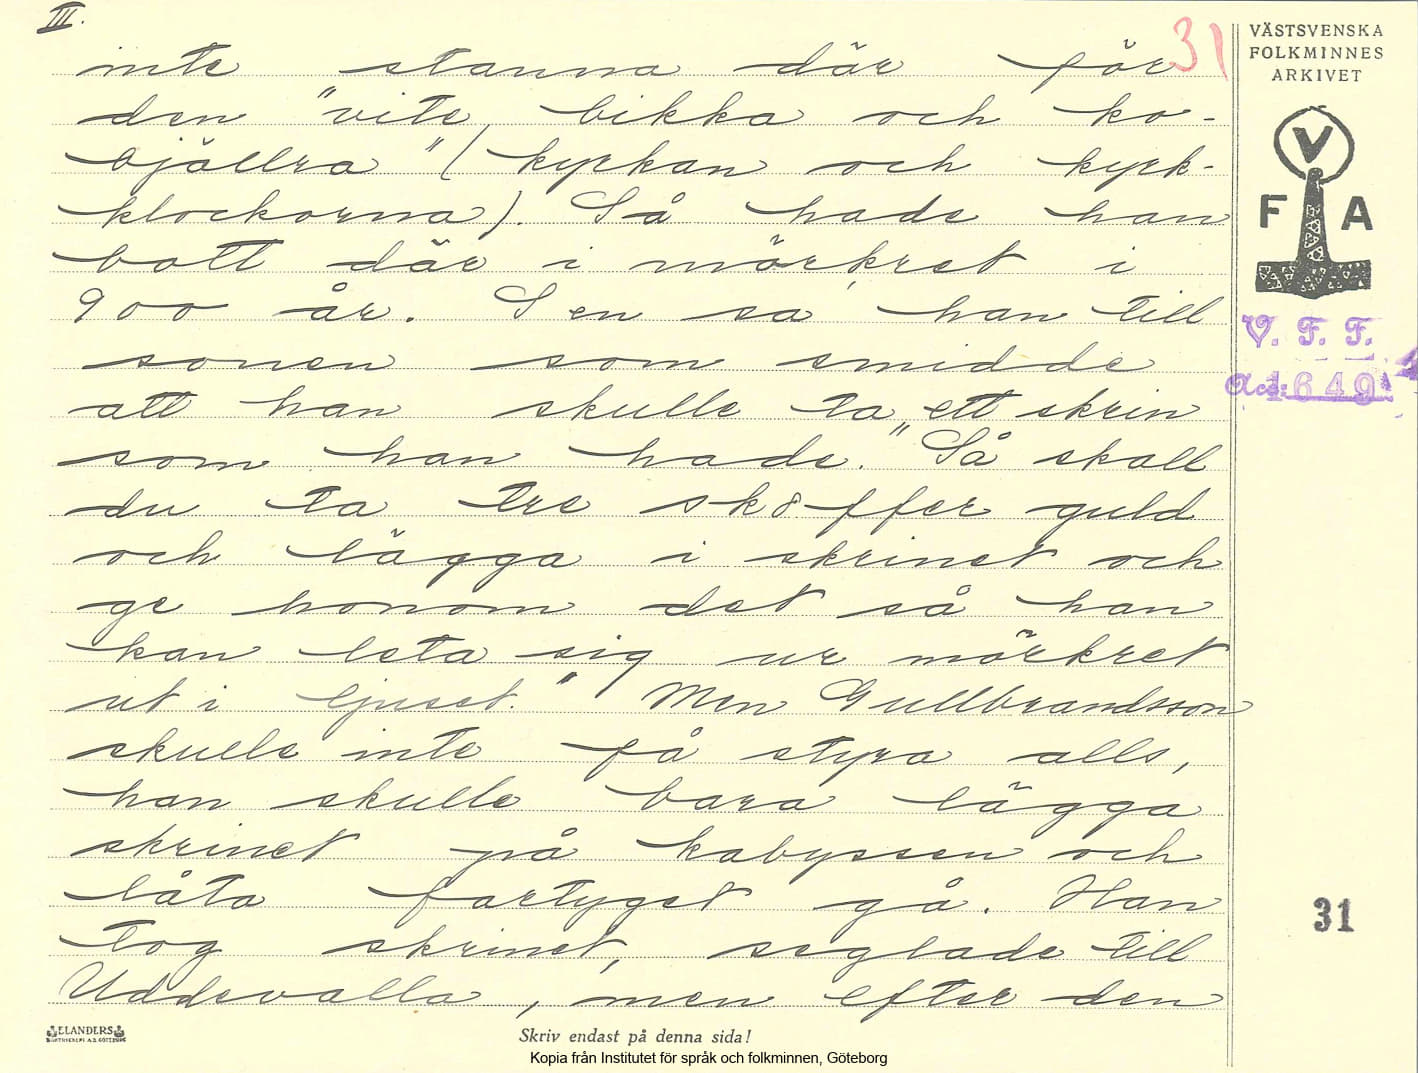 III.
31
inte stanna där för
den "vite bikka och ko-
bjällra" (kyrkan och kyrk-
klockorna). Så hade han
bott där i mörkret i
900 år. Sen sa han till
sonen som smidde
att han skulle ta ett skrin
som han hade. "Så skall
du ta tre sköffer guld
och lägga i skrinet och
ge honom det så han
kan leta sig ur mörkret
ut i ljuset." Men Gullbrandsson
skulle inte få styra alls,
han skulle bara lägga
skrinet på kabyssen och
låta fartyget gå. Han
tog skrinet, seglade till
Uddevalla, men efter den
VÄSTSVENSKA
FOLKMINNES
ARKIVET
V
F A
V. F. F.
Acc: 1649
31
ELANDERS
Skriv endast på denna sida!
Kopia från Institutet för språk och folkminnen, Göteborg